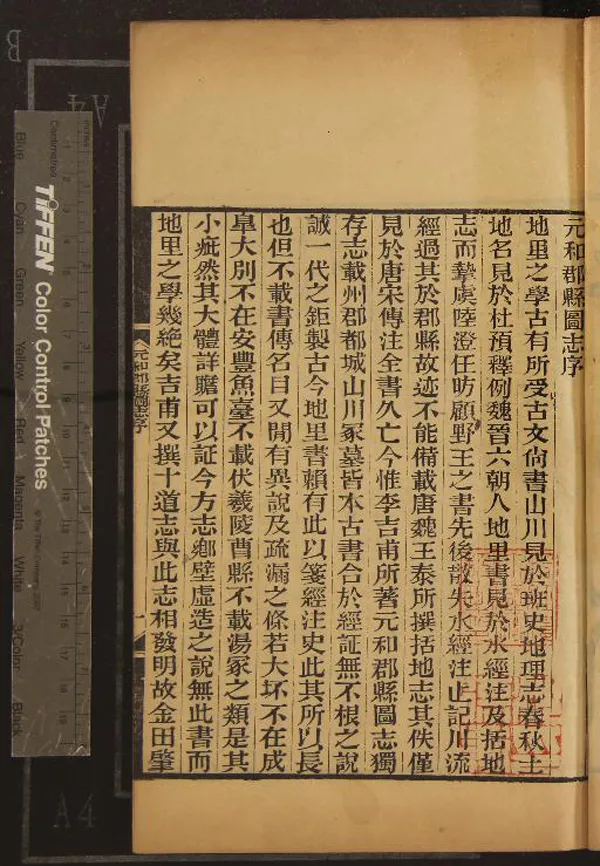 元和郡縣圖志序
地里之學古有所受古文尙書山川見於班史地理志春秋土
地名見於杜預釋例魏晉六朝人地里書見於水經注及括地
志而摯虞陸澄任昉顧野王之書先後散失水經注止記川流
經過其於郡縣故迹不能備載唐魏王泰所撰括地志其佚僅
見於唐宋傳注全書久亡今惟李吉甫所著元和郡縣圖志獨
存志載州郡都城山川冢墓皆本古書合於經証無不根之說
誠一代之鉅製古今地里書賴有此以箋經注史此其所以長
也但不載書傳名目又閒有異說及疏漏之條若大坯不在成
皐大別不在安豐魚臺不載伏羲陵酉縣不載湯冢之類是其
小疵然其大體詳贍可以証今方志鄉壁虛造之說無此書而
地里之學幾絶矣吉甫又撰十道志與此志相發明故金田肇
元和郡縣圖志序
一
TIFFEN Color Control Patches
© The Tiffen Company, 2007
Centimetres
Inches
Blue
Cyan
Green
Yellow
Red
Magenta
White
3/Color
Black
A4
A4
B